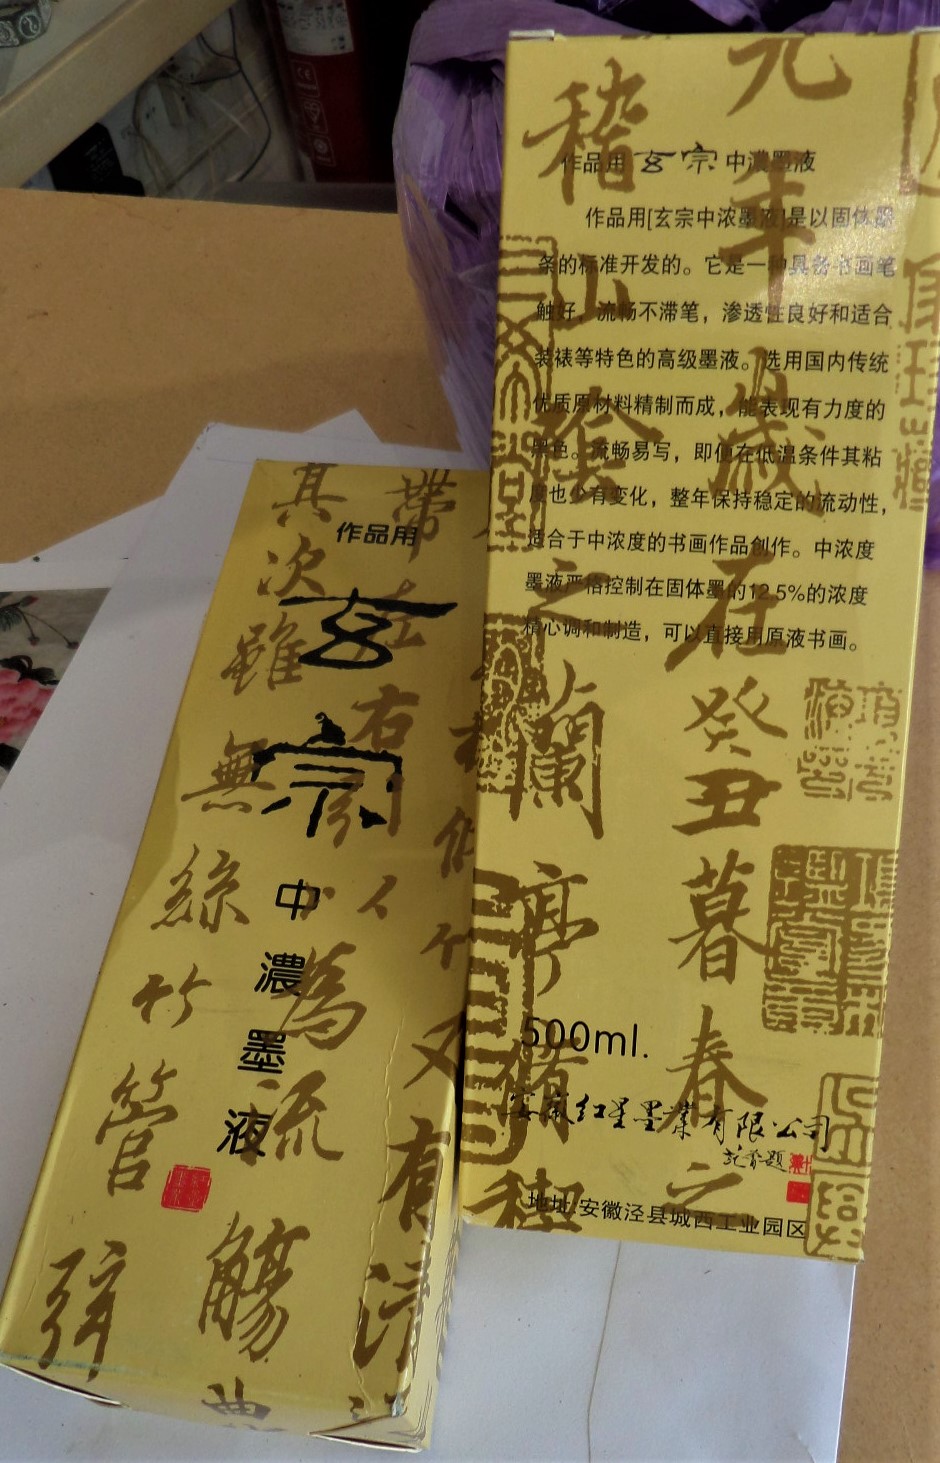 作品用
玄
宗
中
濃
墨
液
其次雖無
絲竹管弦
帶左右引
人為流觴
作品用 玄宗 中濃墨液
作品用[玄宗中浓墨液]是以固体墨
条的标准开发的。它是一种具备书画笔
触好，流畅不滞笔，渗透性良好和适合
装裱等特色的高级墨液。选用国内传统
优质原材料精制而成，能表现有力度的
黑色。流畅易写，即使在低温条件其粘
度也少有变化，整年保持稳定的流动性，
适合于中浓度的书画作品创作。中浓度
墨液严格控制在固体墨的12.5%的浓度
精心调和制造，可以直接用原液书画。
元年歲在癸丑暮春
山陰之蘭亭脩禊
500ml.
安徽红星墨业有限公司
地址:安徽泾县城西工业园区